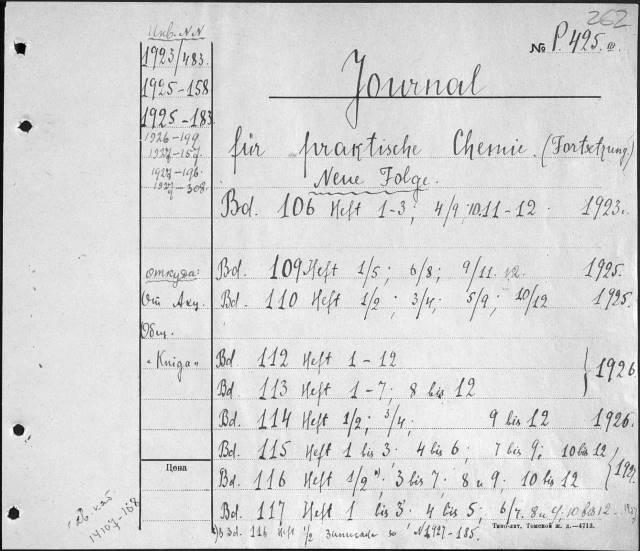 262
№ P. 425. III.
Инв. NN
1923/483.
1925-158
1925-183
1926-199
1927-157.
1927-196.
1927-308.
Journal
für praktische Chemie. (Fortsetzung)
Neue Folge.
Bd. 106 Heft 1-3; 4/9; 10. 11-12 1923.
откуда: Bd. 109 Heft 1/5; 6/8; 9/11. 12. 1925.
От Акц. Bd. 110 Heft 1/2; 3/4; 5/9; 10/12 1925.
Общ.
"Kniga" Bd. 112 Heft 1-12
Bd. 113 Heft 1-7; 8 bis 12 } 1926
Bd. 114 Heft 1/2; 3/4; 9 bis 12 1926.
Bd. 115 Heft 1 bis 3; 4 bis 6; 7 bis 9; 10 bis 12
Цена
Bd. 116 Heft 1/2 *); 3 bis 7; 8 u 9; 10 bis 12
Bd. 117 Heft 1 bis 3; 4 bis 5; 6/7. 8 u 9; 10 bis 12
Типо-лит. Томской ж. д.—4713.
*) Bd. 116 Heft 1/2 записано за № 1927-185.